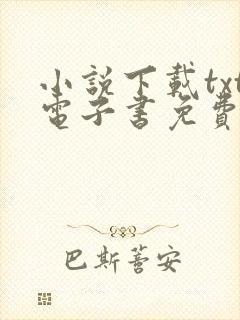 小説下載txt
電子書免費
巴斯蒼安